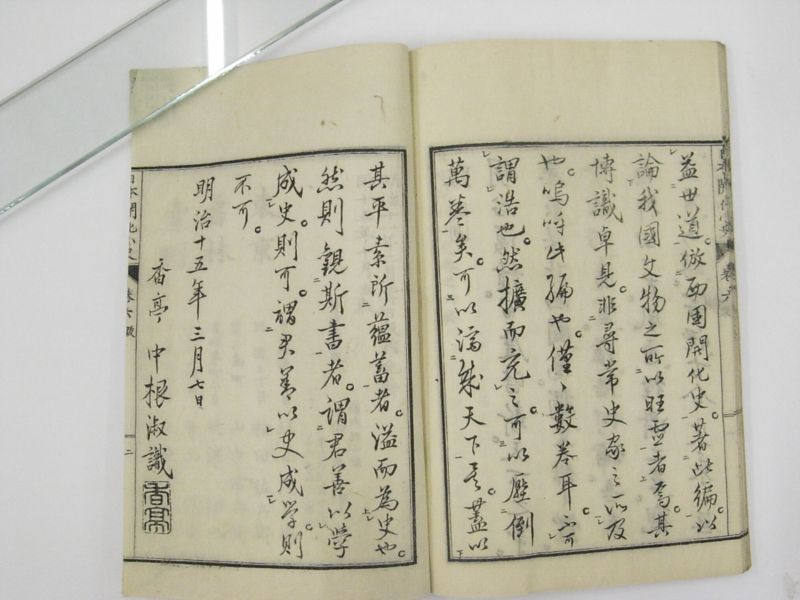 益世道。倣西国開化史。著此編。以
論我國文物之所以旺盛者。焉其
博識卓見。非尋常史家之所及
也。嗚呼此編也。僅々數巻耳。不可
謂浩也。然擴而充之。可以壓倒
萬巻矣。可以満天下矣。蓋以
其平素所蘊蓄者。溢而為史也。
然則觀斯書者。謂君善以學
成史則可。謂君善以史成学則
不可。
明治十五年三月七日
香亭中根淑識
香亭
日本開化小史
巻六
日本開化小史
巻六跋
二